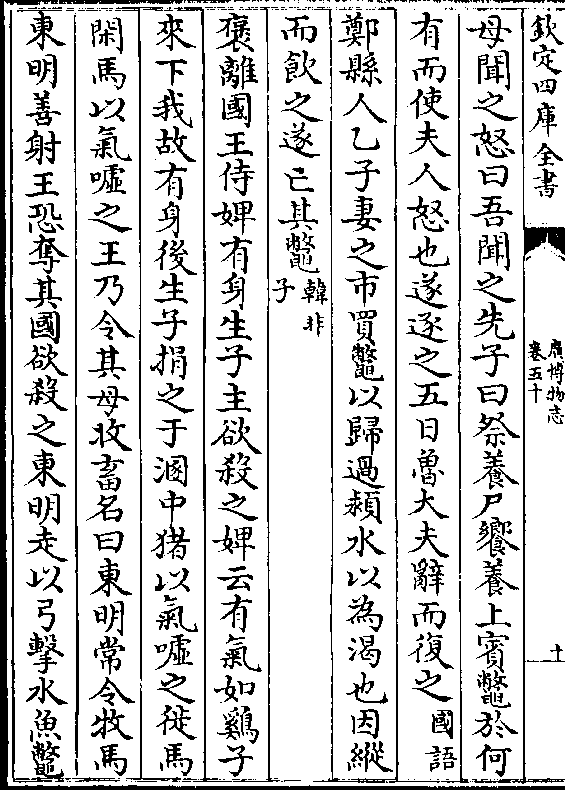 欽定四庫全書
廣博物志
卷五十
十
母聞之怒曰吾聞之先子曰祭養尸饗養上賓鼈於何
有而使夫人怒也遂逐之五日魯大夫辭而復之國語
鄭縣人乙子妻之市買鼈以歸過潁水以為渴也因縱
而飲之遂亡其鼈韓非子
褒離國王侍婢有身生子主欲殺之婢云有氣如雞子
來下我故有身後生子捐之于溷中猪以氣噓之徙馬
閑馬以氣噓之王乃令其母收畜名曰東明常令牧馬
東明善射王恐奪其國欲殺之東明走以弓擊水魚鼈